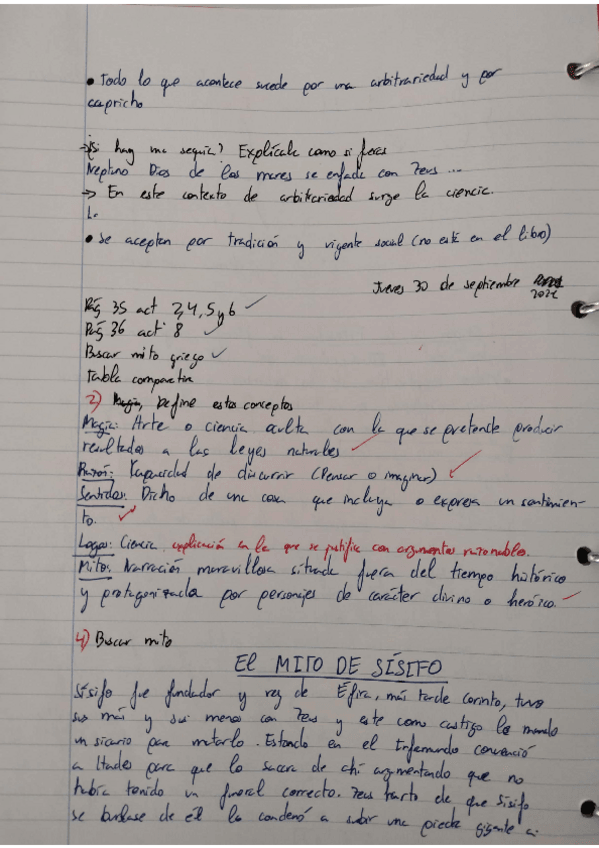 • Todo lo que acontece sucede por una arbitrariedad y por
capricho
→ Si hay una sequía? Explícale como si fueras
Neptuno Dios de los mares se enfada con Zeus ...
→ En este contexto de arbitrariedad surge la ciencia.
L.
• Se aceptan por tradición y vigente social (no está en el libro)
Jueves 30 de septiembre
2021
Pág 35 act 2,4,5 y 6
Pág 36 act 8
Buscar mito griego
Tabla comparativa
2) Define estos conceptos
Magia: Arte o ciencia oculta con la que se pretende producir
resultados a las leyes naturales
Razón: Kapacidad de discurrir (Pensar o imaginar)
Sentidos: Dicho de una cosa que incluya o expresa un sentimien-
to.
Logos: Ciencia explicación en la que se justifica con argumentos razonables.
Mito: Narración maravillosa situada fuera del tiempo histórico
y protagonizada por personajes de carácter divino o heróico.
4) Buscar mito
El MITO DE SÍSIFO
Sísifo fue fundador y rey de Éfira, más tarde corinto, tuvo
sus más y sus menos con Zeus y este como castigo le mando
un sicario para matarlo. Estando en el Inframundo convenció
a Hades para que lo sacara de ahí argumentando que no
había tenido un funeral correcto. Zeus harto de que Sísifo
se burlase de él lo condenó a subir una piedra gigante a